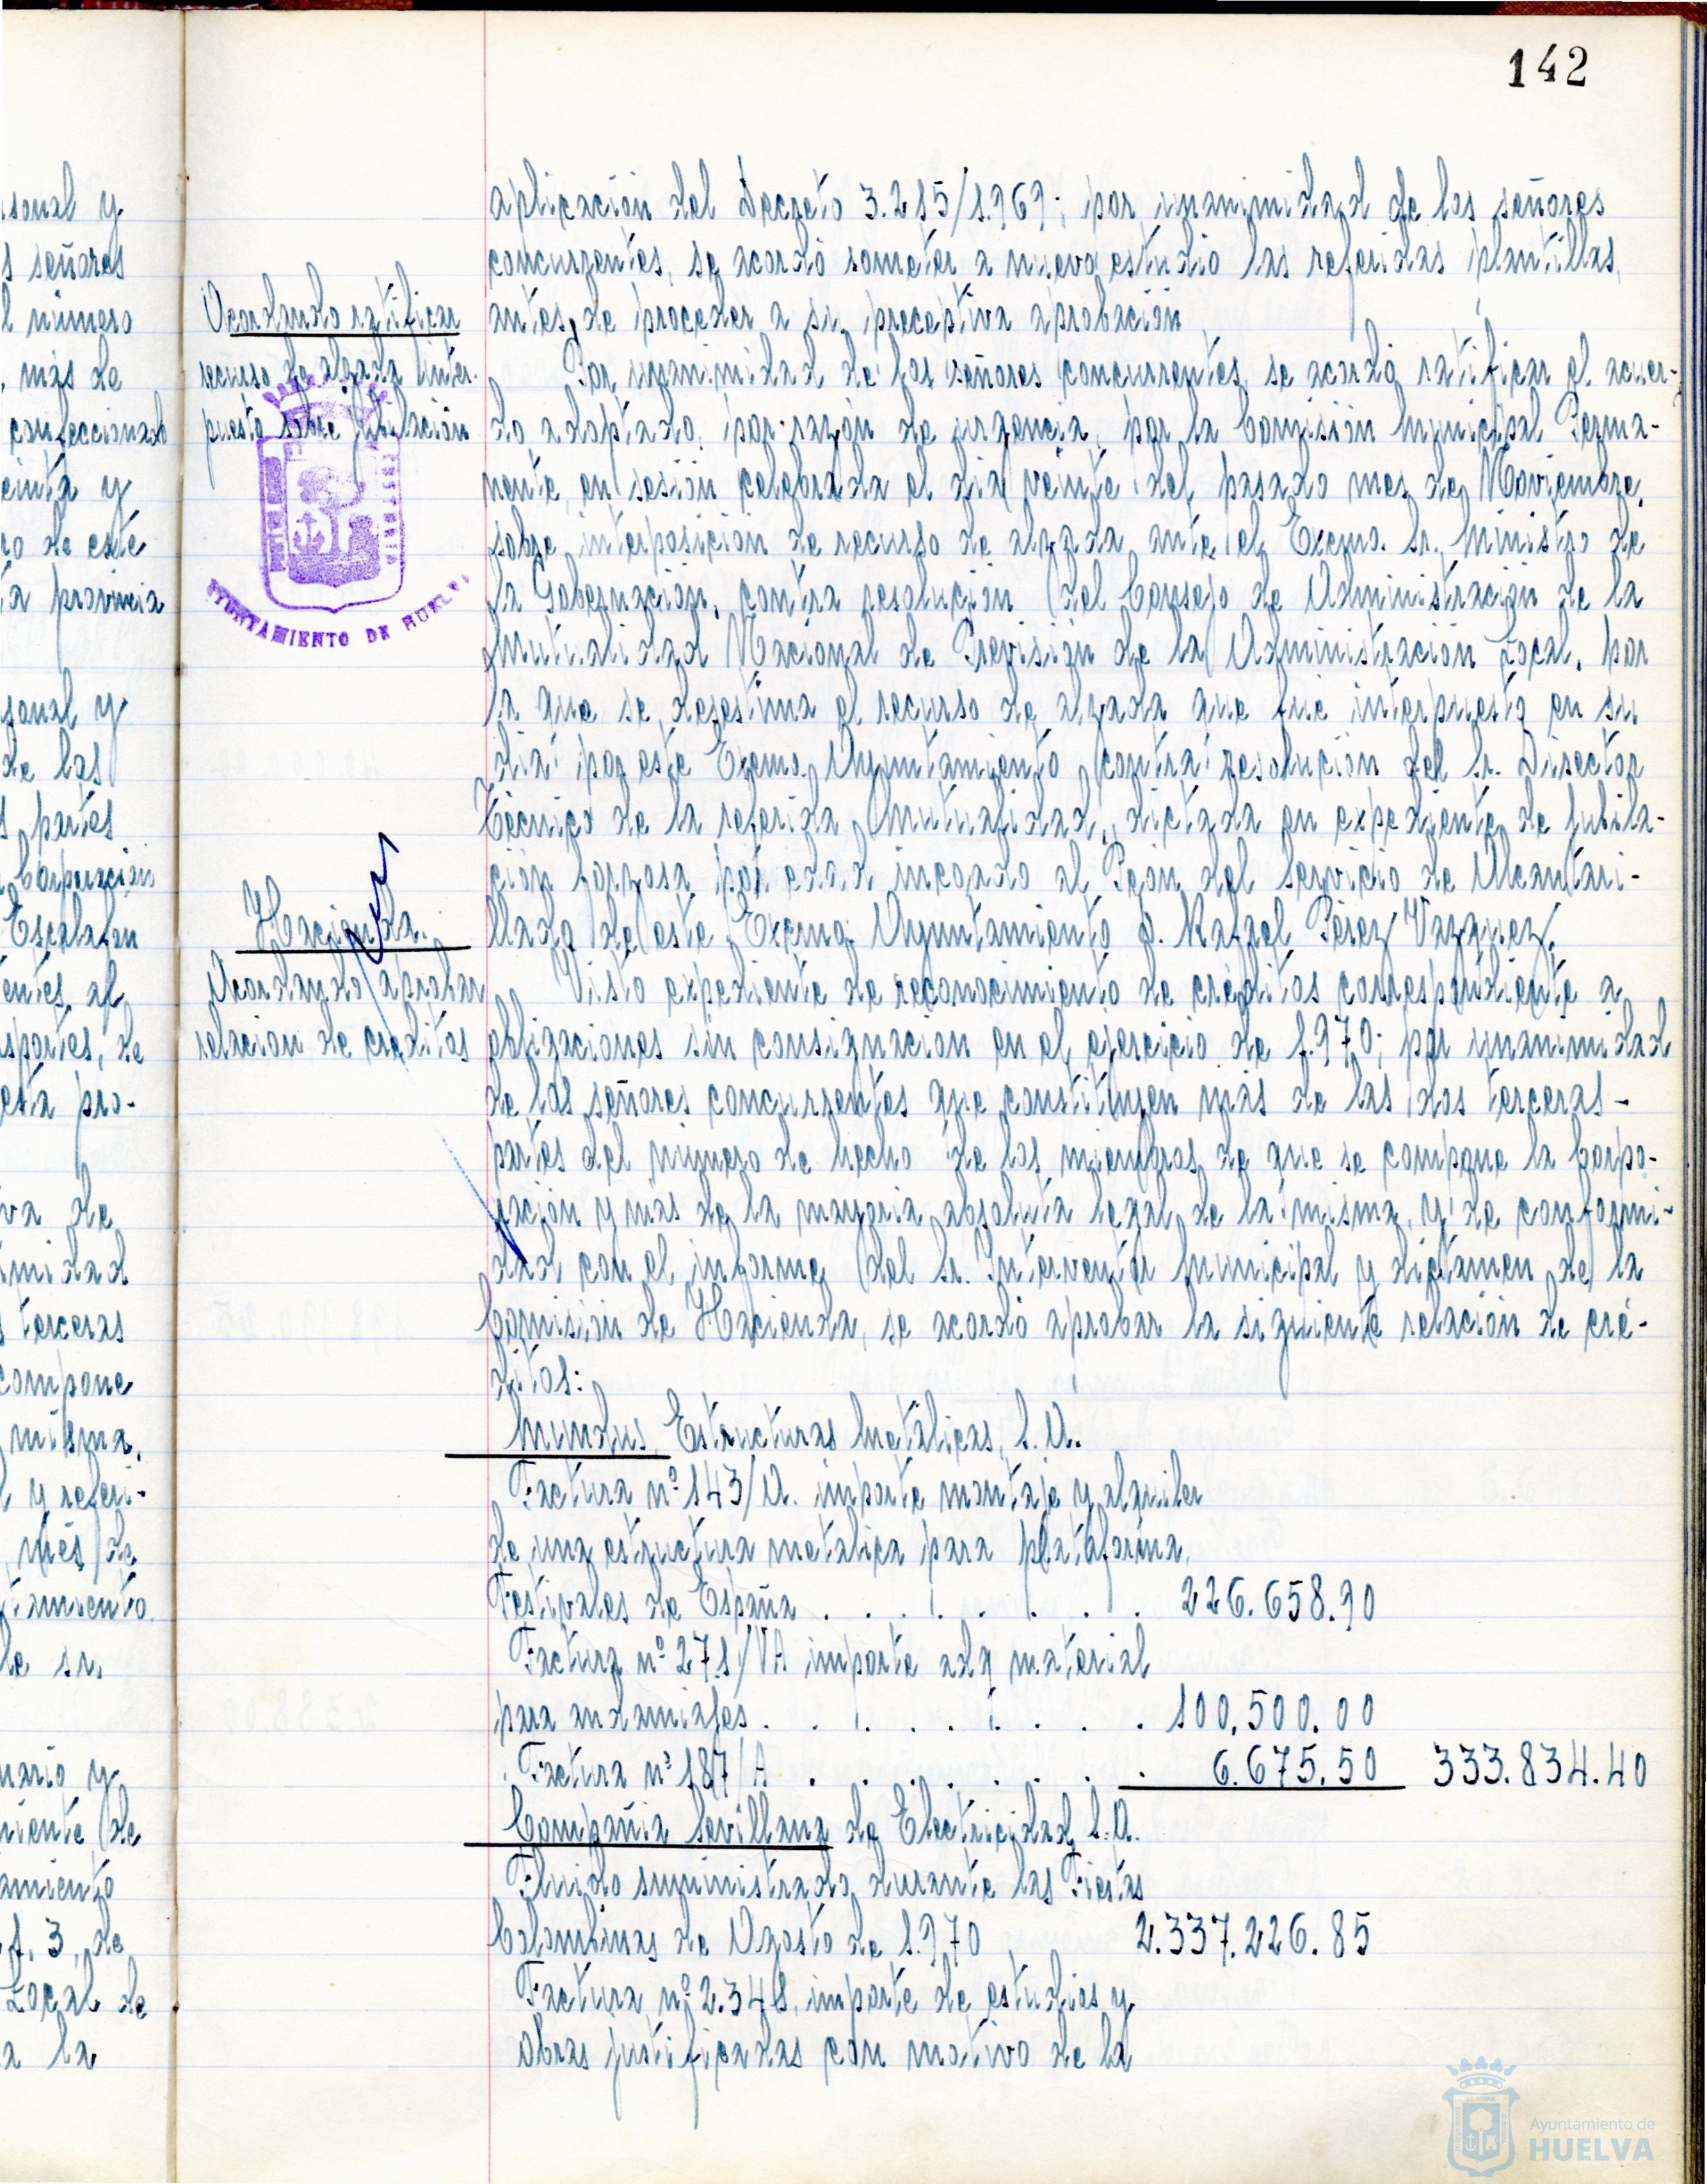 142
sonal y
s señores
l número
, más de
confeccionado
einta y
co de este
ta provincia
sonal y
de las
s partes
Corporación
Escalafón
entes al
sportes, de
esta pro-
va de
imidad
s terceras
compone
misma,
l y referi-
mes de
tamiento
de su
nario y
niente de
amiento
1.3, de
Local de
a la
Acordando ratificar
recurso de alzada inter-
puesto sobre jubilación
AYUNTAMIENTO DE HUELVA
Hacienda.
Acordando aprobar
relación de créditos
aplicación del Decreto 3.215/1.969; por unanimidad de los señores
concurrentes, se acordó someter a nuevo estudio las referidas plantillas,
antes de proceder a su preceptiva aprobación.
Por unanimidad de los señores concurrentes se acordó ratificar el acuer-
do adoptado, por razón de urgencia, por la Comisión Municipal Perma-
nente, en sesión celebrada el día veinte del pasado mes de Noviembre,
sobre interposición de recurso de alzada ante el Excmo. Sr. Ministro de
la Gobernación, contra resolución del Consejo de Administración de la
Mutualidad Nacional de Previsión de la Administración Local, por
la que se desestima el recurso de alzada que fué interpuesto en su
día por este Excmo. Ayuntamiento contra resolución del Sr. Director
Técnico de la referida Mutualidad, dictada en expediente de jubila-
ción forzosa por edad incoado al Peón del Servicio de Alcantari-
llado de este Excmo. Ayuntamiento D. Rafael Pérez Vazquez.
Visto expediente de reconocimiento de créditos correspondiente a
obligaciones sin consignación en el ejercicio de 1.970; por unanimidad
de los señores concurrentes que constituyen más de las dos terceras-
partes del número de hecho de los miembros de que se compone la Corpo-
ración y más de la mayoría absoluta legal de la misma, y de conformi-
dad con el informe del Sr. Interventor Municipal y dictamen de la
Comisión de Hacienda, se acordó aprobar la siguiente relación de cré-
ditos:
Mundus, Estructuras Metálicas, S.A.
Factura nº 143/A. importe montaje y alquiler
de una estructura metálica para plataforma,
Festivales de España . . . . . . . 226.658.90
Factura nº 271/VA importe adq material
para andamiajes . . . . . . . . 100,500.00
Factura nº 187/A . . . . . . . 6.675.50 333.834.40
Compañía Sevillana de Electricidad, S.A.
Fluido suministrado durante las Fiestas
Colombinas de Agosto de 1.970 2.337.226.85
Factura nº 2.348, importe de estudios y
obras justificadas con motivo de la
Ayuntamiento de
HUELVA